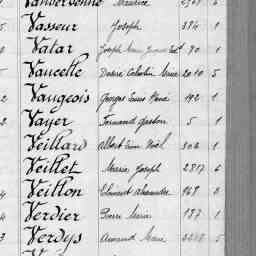 Vanderbenne Maurice
Vasseur Joseph 384 1
Vatar Joseph 90 1
Vaucelle Désiré Célestin 2010 5
Vaugeois Georges Louis René 192 1
Vayer Fernand Gaston 5 1
Veillard Albert Noël 302 1
Veillet Marie Joseph 2817 6
Veillon Clément Alexandre 968 2
Verdier Pierre Marie 187 1
Verdys Armand Marie 5